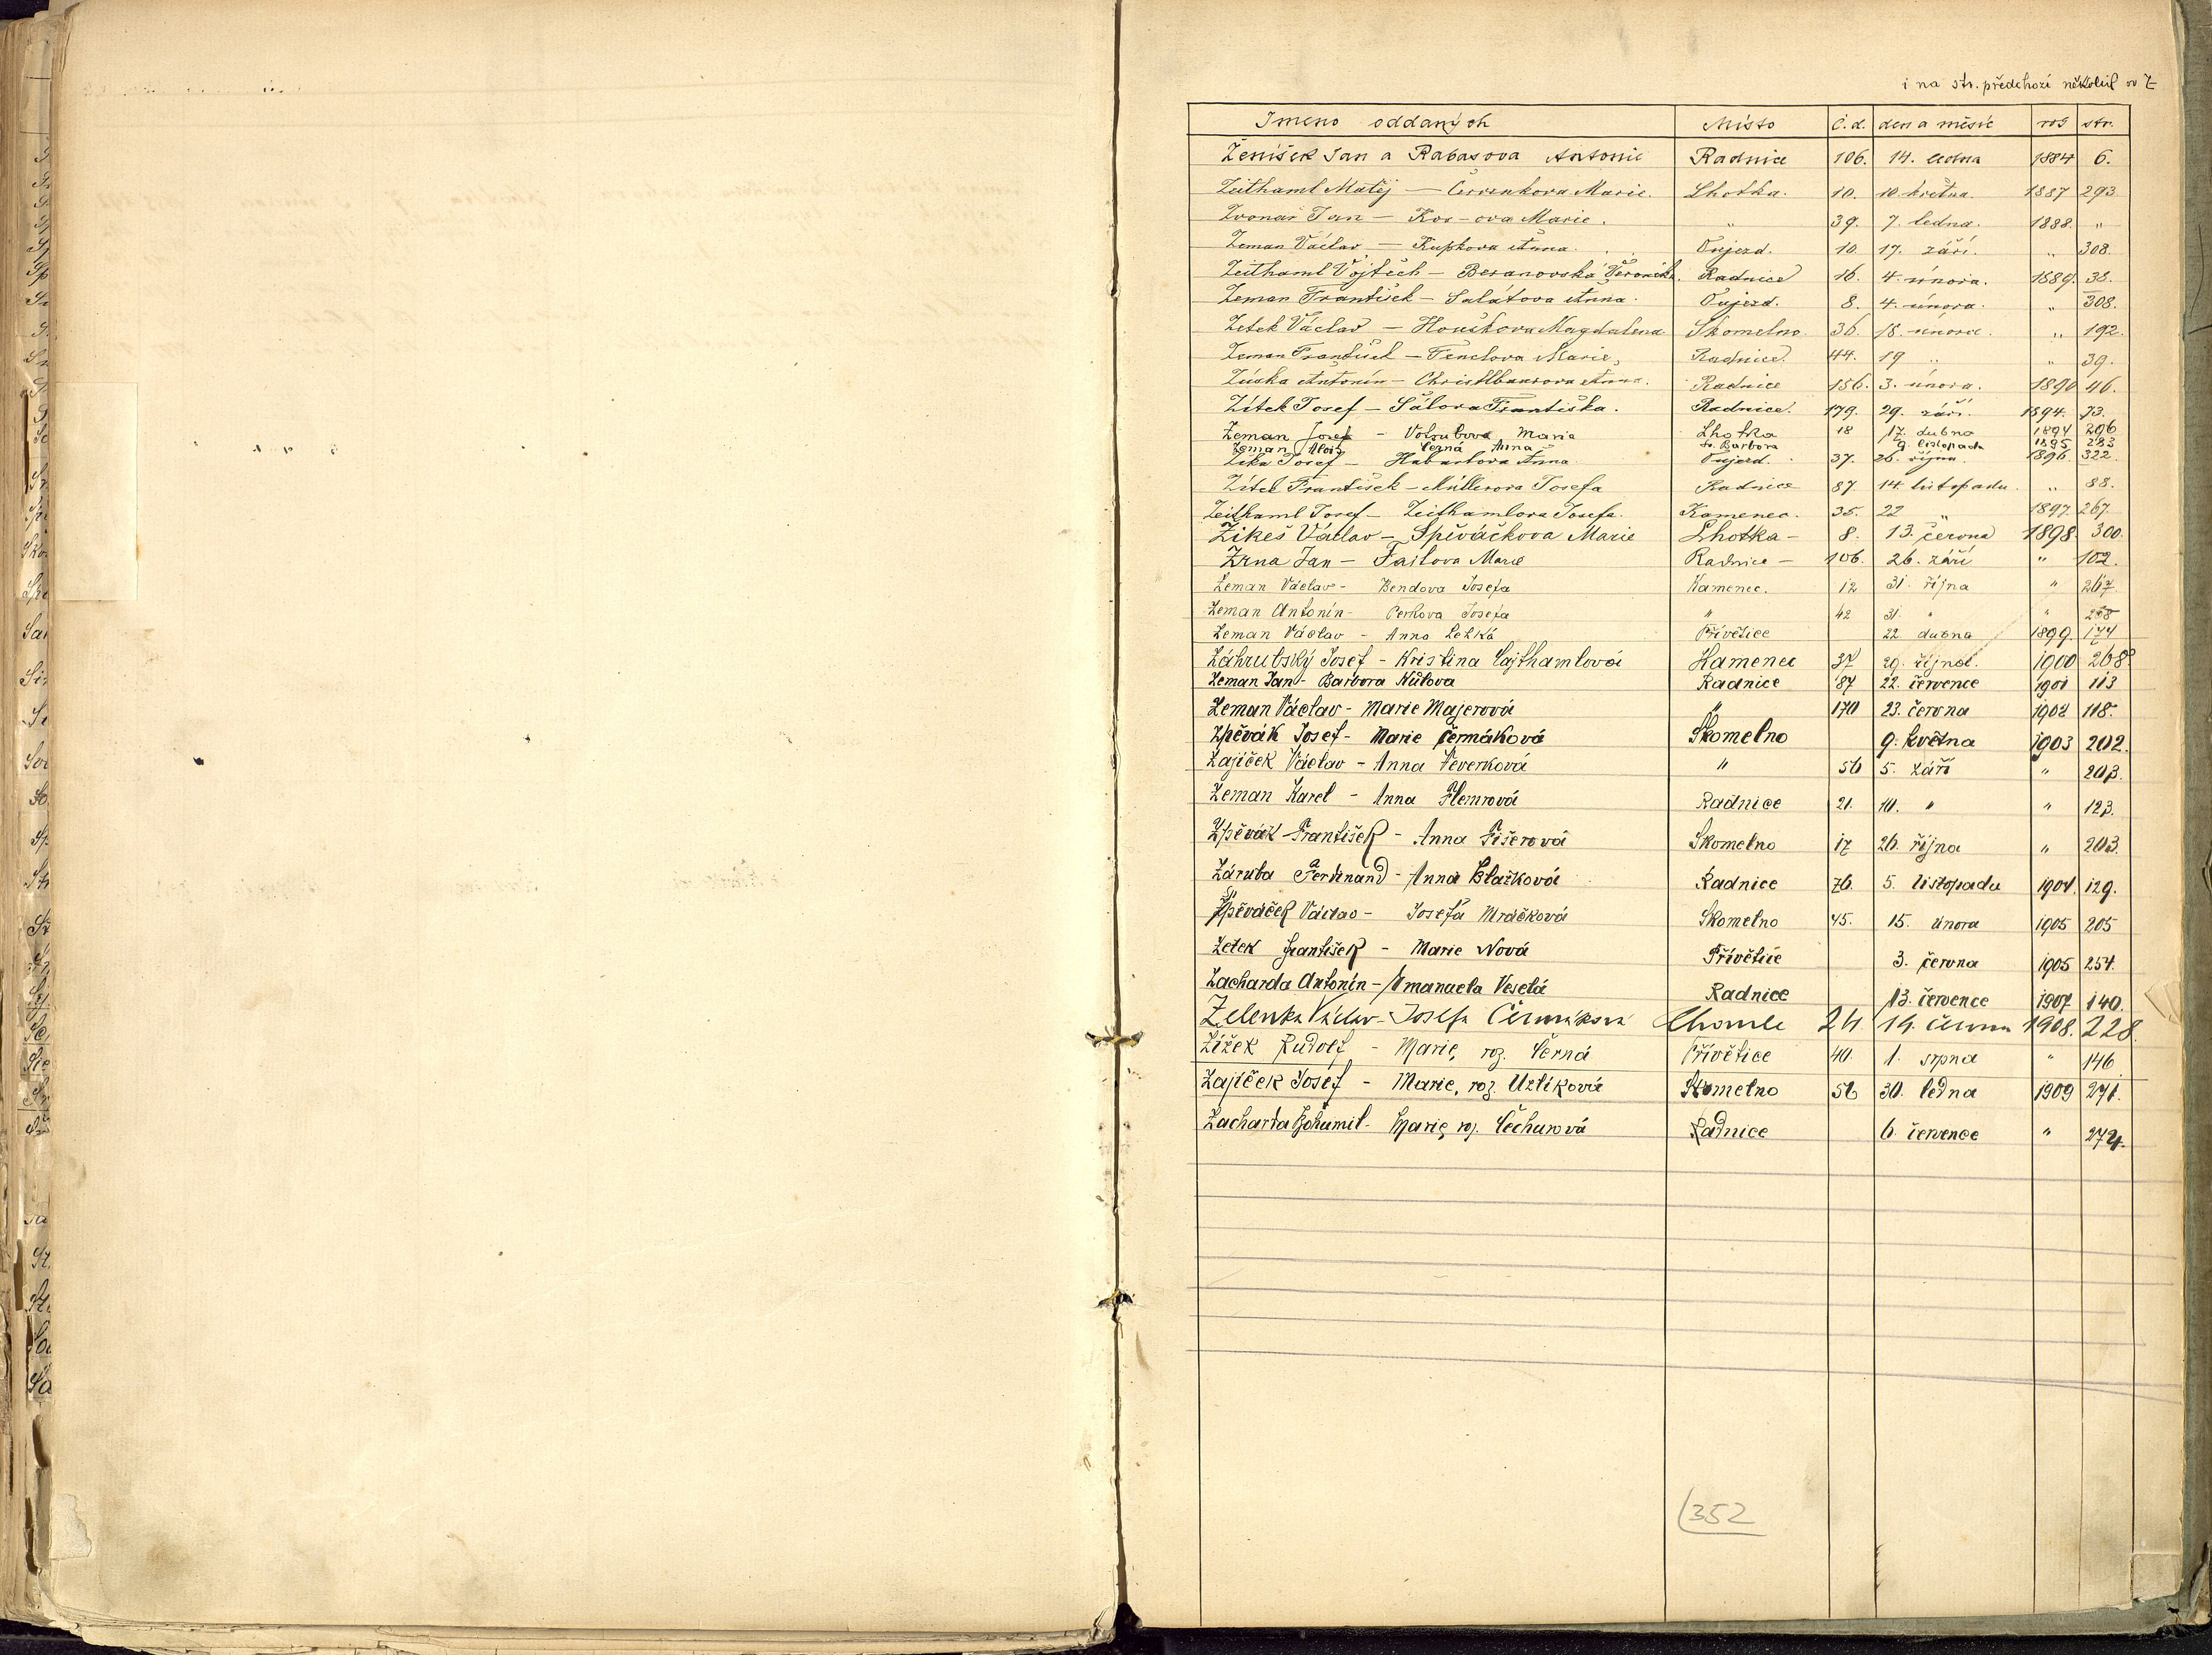 i na str. předchozí několik
Jmeno oddaných Místo č.d. den a měsíc rok str.
Ženíšek Jan a Rabasova Antonie Radnice 106. 14. ledna 1884 6.
Zeithaml Matěj — Červenkova Marie. Lhotka. 10. 10. května. 1887 293
Zvonař Jan — Marie. " 39. 7. ledna. 1888. "
Zeman Václav — Kupkova Anna. Oujezd. 10. 17. září. " 308.
Zeithaml Vojtěch — Beranovská Veronika. Radnice 16. 4. února. 1889. 35.
Zeman František — Salátova Anna. Oujezd. 8. 4. února. " 308.
Zetek Václav — Houškova Magdalena Skomelno. 36. 18. února. " 192.
Zeman František — Fenclova Marie, Radnice. 44. 19 " " 39.
Antonín — Anna. Radnice 156. 3. února. 1890 46.
Zítek Josef — Sálova Františka. Radnice. 179. 29. září. 1894. 73.
Zeman Josef - Votrubova Marie Lhotka 18 17. dubna 1894 296
Zeman Alois Černá Anna - sv. Barbora 9. listopadu 1895 283
Zíka Josef — Habartova Anna Oujezd. 37. 26. října. 1896. 322.
Zítek František — Müllerova Josefa Radnice 87 14. listopadu. " 88.
Zeithaml Josef — Zeithamlova Josefa. Kamenec. 35. 22 " 1897. 267.
Zikeš Václav — Spěváčkova Marie Lhotka — 8. 13. června 1898. 300.
Zrna Jan — Faitova Marie Radnice — 106. 26. září " 102.
Zeman Václav - Bendova Josefa Kamenec. 12 31. října " 267
Zeman Antonín - Josefa " 42 31. " "
Zeman Václav - Anna Přívětice 22. dubna 1899. 174
Záhrubský Josef - Kristina Cajthamlová Kamenec 37 29. října. 1900 268
Zeman Jan - Barbora Radnice 87 22. července 1901 113
Zeman Václav - Marie Majerová " 170 23. června 1902 118.
Zpěvák Josef - Marie Čermáková Skomelno 9. května 1903 202.
Zajíček Václav - Anna Veverková " 56 5. září " 203.
Zeman Karel - Anna Flemrová Radnice 21. 10. " " 123.
Zpěvák František - Anna Fišerová Skomelno 17 26. října " 203.
Záruba Ferdinand - Anna Blažková Radnice 76. 5. listopadu 1904. 129.
Zpěváček Václav - Josefa Mráčková Skomelno 45. 15. února 1905 205
Zetek František - Marie Nová Přívětice 3. června 1905 254.
Zacharda Antonín - Emanuela Veselá Radnice 13. července 1907 140.
Zelenka Václav - Josefa Čermáková Chomle 24. 14. června 1908. 228.
Žížek Rudolf - Marie, roz. Černá Přívětice 40. 1. srpna " 146
Zajíček Josef - Marie, roz. Uzlíková Skomelno 56 30. ledna 1909 271.
Zacharda Bohumil - Marie, roz. Čechurová Radnice 6. července " 274.
352